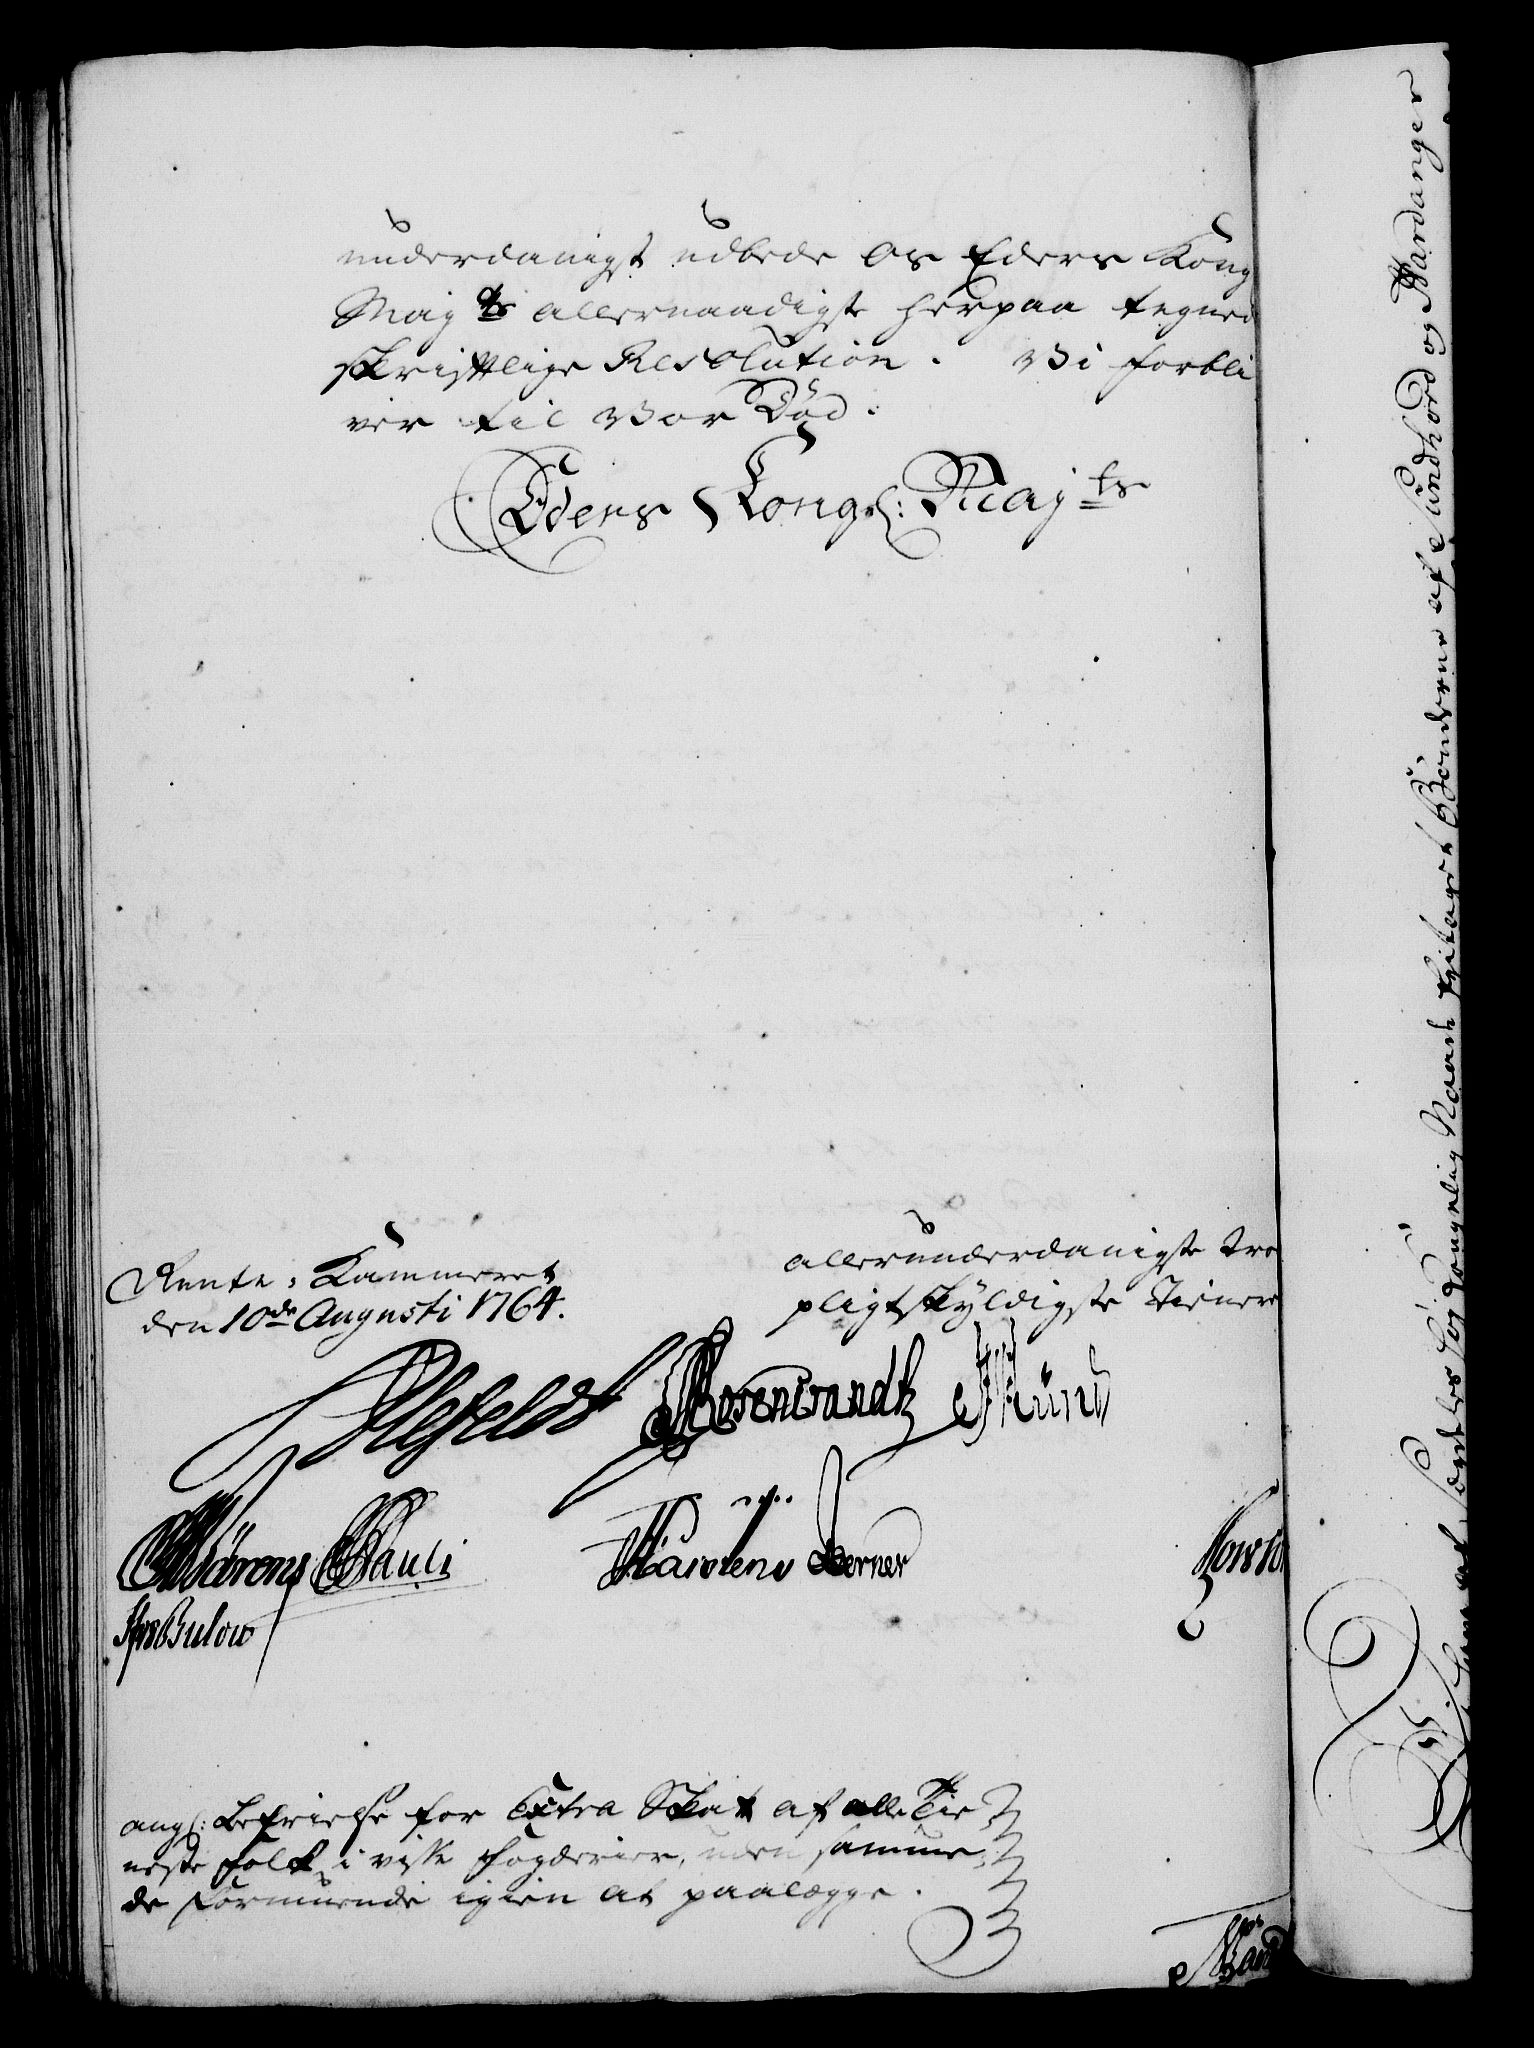 underdanigst udbede os Eders Kong
Maj ts allernaadigste herpaa tegned
skriftlige Resolution. Vi forbli
ver til Vor Död.
Eders Kongel: Maj ts
Rente-Kammeret
den 10de Augusti 1764.
allerunderdanigste tro
pligtskyldigste Tienere
Ahlefeldt Rosencrandtz
Pauli Karstens Berner
Bulow
angl: Befrielse for Extra Skat af alle Tie
neste Folk i visse Fogderier, uden samme
de Formuende igien at paalægge.
Kongelig Naade fritaget Bönderne af Sundhord og Hardanger